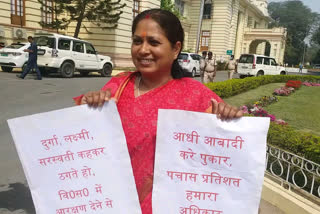 दुर्गा, लक्ष्मी,
सरस्वती कहकर
ठगते हो,
वि0स0 में
आरक्षण देने से
आधी आबादी
करे पुकार,
पचास प्रतिशत
हमारा
अधिकार